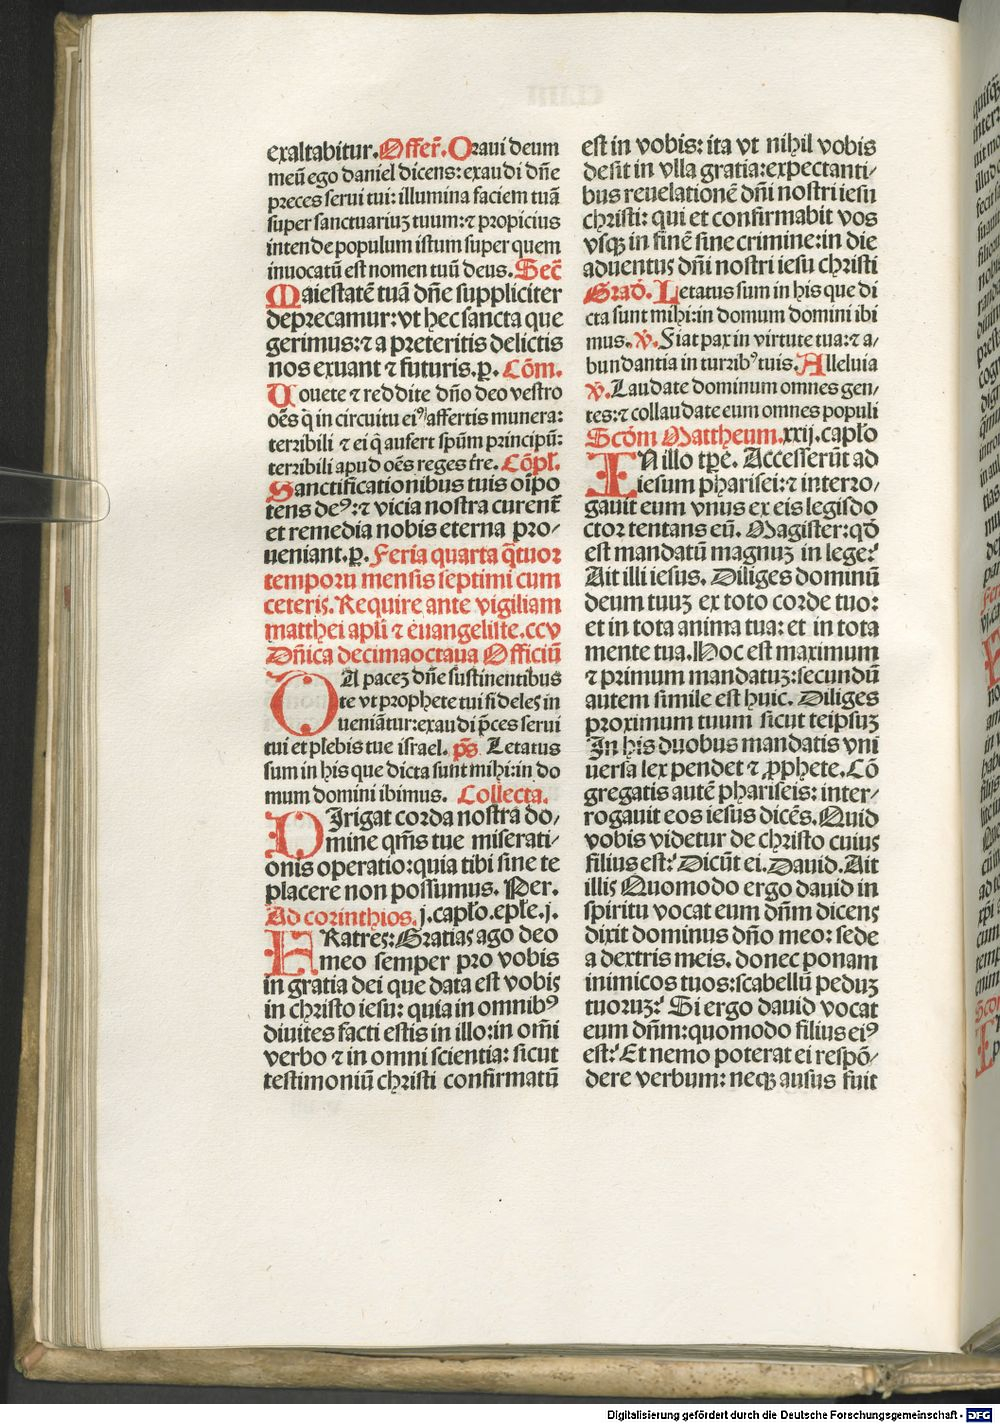 exaltabitur. Offer̄. Oraui deum
meū ego daniel dicens: exaudi dn̄e
preces serui tui: illumina faciem tuā
super sanctuariuꝫ tuum: ⁊ propicius
intende populum istum super quem
inuocatū est nomen tuū deus. Sec̄
Maiestatē tuā dn̄e suppliciter
deprecamur: vt hec sancta que
gerimus: ⁊ a preteritis delictis
nos exuant ⁊ futuris. ꝑ. Cōm.
Vouete ⁊ reddite dn̄o deo vestro
oēs q̄ in circuitu eiꝰ affertis munera:
terribili ⁊ ei q̄ aufert spūm principū:
terribili apud oēs reges tr̄e. Cōpl.
Sanctificationibus tuis oīpo
tens deꝰ: ⁊ vicia nostra curent̄
et remedia nobis eterna pro-
ueniant. ꝑ. Feria quarta q̄tuor
temporū mensis septimi cum
ceteris. Require ante vigiliam
matthei apli ⁊ euangeliste. ccv
Dn̄ica decimaoctaua Officiū
DA paceꝫ dn̄e sustinentibus
te vt prophete tui fideles in
ueniātur: exaudi p̄ces serui
tui et plebis tue israel. ps̄. Letatus
sum in his que dicta sunt mihi: in do
mum domini ibimus. Collecta.
DIrigat corda nostra do-
mine qm̄s tue miserati-
onis operatio: quia tibi sine te
placere non possumus. Per.
Ad corinthios. j. caplo. eple. j.
FRatres: Gratias ago deo
meo semper pro vobis
in gratia dei que data est vobis
in christo iesu: quia in omnibꝰ
diuites facti estis in illo: in om̄i
verbo ⁊ in omni scientia: sicut
testimoniū christi confirmatū
est in vobis: ita vt nihil vobis
desit in vlla gratia: expectanti-
bus reuelationē dn̄i nostri iesu
christi: qui et confirmabit vos
vsqꝫ in finē sine crimine: in die
aduentus dn̄i nostri iesu christi
Grad̄. Letatus sum in his que di
cta sunt mihi: in domum domini ibi
mus. v̄. Fiat pax in virtute tua: ⁊ a-
bundantia in turribꝰ tuis. Alleluia
v̄. Laudate dominum omnes gen-
tes: ⁊ collaudate eum omnes populi
Scd̄m Mattheum. xxij. caplo
IN illo tp̄e. Accesserūt ad
iesum pharisei: ⁊ interro-
gauit eum vnus ex eis legisdo
ctor tentans eū. Magister: qd̄
est mandatū magnuꝫ in lege?
Ait illi iesus. Diliges dominū
deum tuuꝫ ex toto corde tuo:
et in tota anima tua: et in tota
mente tua. Hoc est maximum
⁊ primum mandatuꝫ: secundū
autem simile est huic. Diliges
proximum tuum sicut teipsuꝫ
In his duobus mandatis vni
uersa lex pendet ⁊ ꝓphete. Cō
gregatis autē phariseis: inter-
rogauit eos iesus dicēs. Quid
vobis videtur de christo cuius
filius est? Dicūt ei. Dauid. Ait
illis Quomodo ergo dauid in
spiritu vocat eum dn̄m dicens
dixit dominus dn̄o meo: sede
a dextris meis. donec ponam
inimicos tuos: scabellū peduꝫ
tuoruꝫ? Si ergo dauid vocat
eum dn̄m: quomodo filius eiꝰ
est? Et nemo poterat ei respō-
dere verbum: neqꝫ ausus fuit
Digitalisierung gefördert durch die Deutsche Forschungsgemeinschaft - DFG